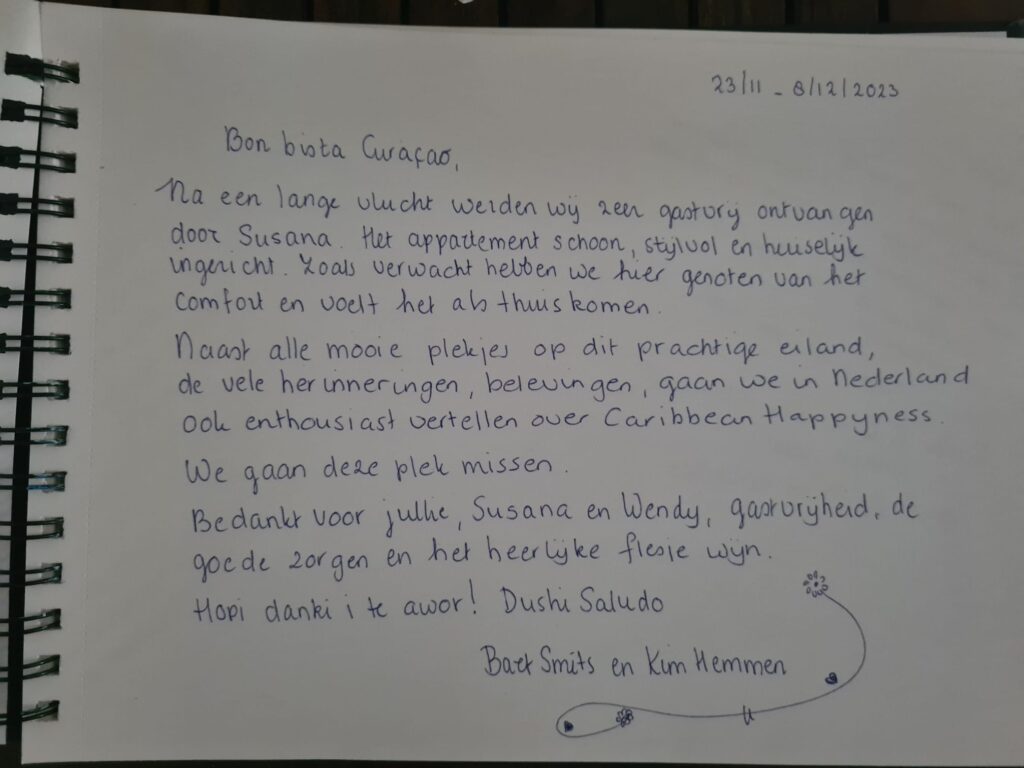 23/11 - 8/12/2023
Bon bista Curaçao,
Na een lange vlucht werden wij zeer gastvrij ontvangen
door Susana. Het appartement schoon, stijlvol en huiselijk
ingericht. Zoals verwacht hebben we hier genoten van het
comfort en voelt het als thuiskomen.
Naast alle mooie plekjes op dit prachtige eiland,
de vele herinneringen, belevingen, gaan we in Nederland
ook enthousiast vertellen over Caribbean Happyness.
We gaan deze plek missen.
Bedankt voor jullie, Susana en Wendy, gastvrijheid, de
goede zorgen en het heerlijke flesje wijn.
Hopi danki i te awor! Dushi Saludo
Bart Smits en Kim Hemmen